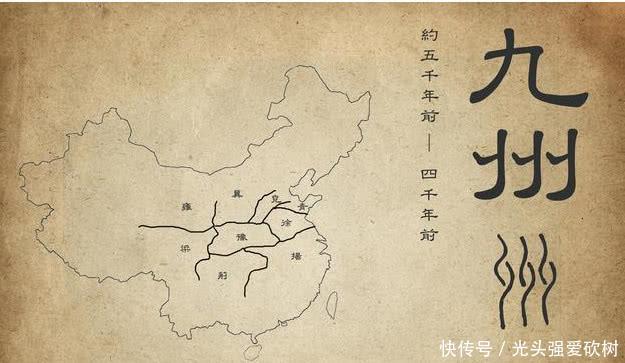 九州
州
約五千年前 — 四千年前
雍
冀
兗
青
徐
豫
梁
荊
揚
快传号 / 光头强爱砍树